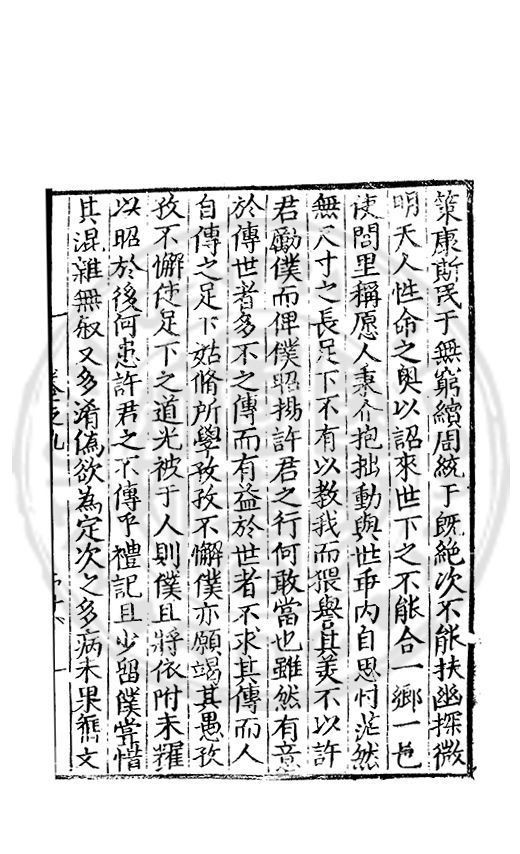 策康斯民于無窮續周統于既絕次不能扶幽探微
明天人性命之奥以詔來世下之不能合一鄉一邑
使閭里稱愿人秉介抱拙動與世乖内自思忖茫然
無尺寸之長足下不有以教我而猥譽其美不以許
君勵僕而俾僕昭揚許君之行何敢當也雖然有意
於傳世者多不之傳而有益於世者不求其傳而人
自傳之足下姑脩所學孜孜不懈僕亦願竭其愚孜
孜不懈使足下之道光被于人則僕且將依附未躍
以昭於後何患許君之不傳乎禮記且少留僕嘗惜
其混雜無叙又多淆偽欲為定次之多病未果舊文
卷之九